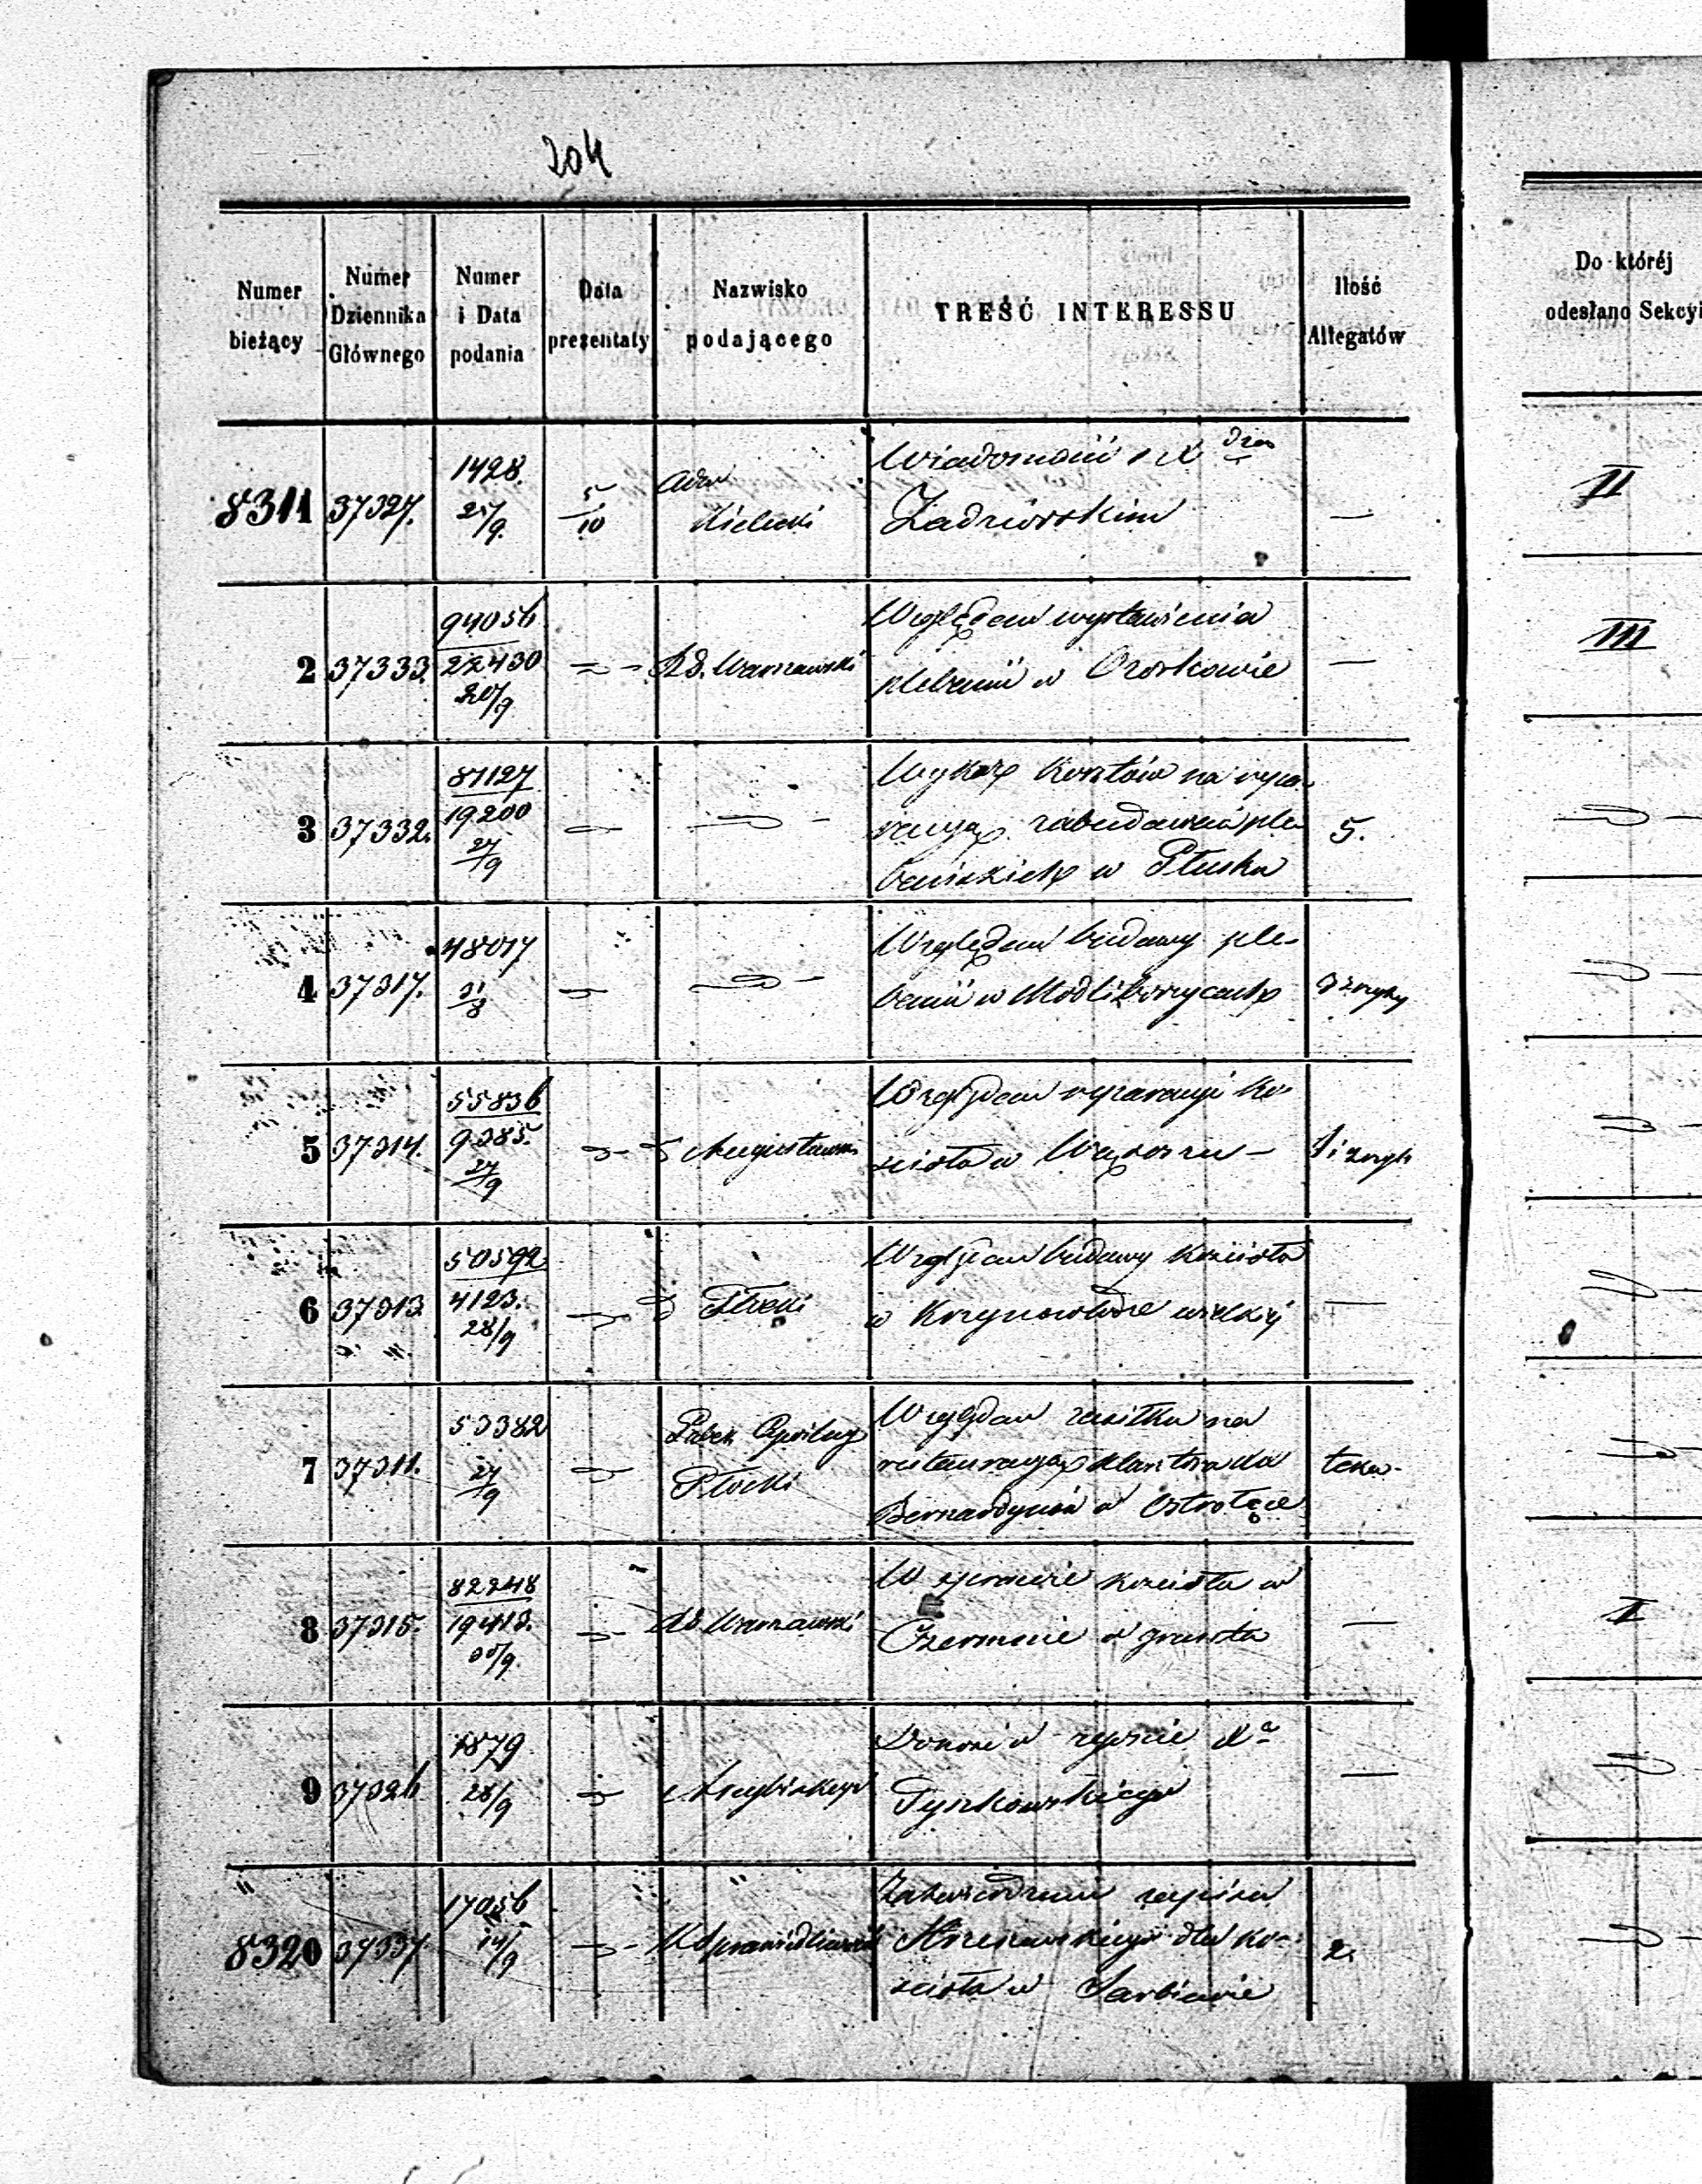 204
Numer bieżący
Numer Dziennika Głównego
Numer i Data podania
Data prezentaty
Nazwisko podającego
TREŚĆ INTERESSU
Ilość Allegatów
Do któréj odesłano Sekcyi
8311 37327. 1428. 27/9. 5/10 Adm Kielecki
Wiadomość o X
Zadziorskim — II
2 37333. 94056 22430 20/9 Rd. Warszawski
Względem wystawienia
plebanii w Ozorkowie — III
3 37332. 87127 19200 27/9
Wykaz kosztów na repa-
racyą zabudowań ple-
bańskich w Płusku 5.
4 37317. 48017 31/8
Względem budowy ple-
banii w Modliborzycach
5 37314. 55836 9385. 27/9 Augustowski
Względem reparacyi ko-
ścioła w Wąsoszu —
6 37313 50592 4123. 28/9 Płocki
Względem budowy kościoła
w Krzynowłodze wielkiej —
7 37311. 53382 27/9 Cywilny
Płocki
Względem zasiłku na
restauracyą klasztoru
Bernardynów w Ostrołęce teka.
8 37315. 82248 19413. 30/9. Rd. Warszawski
W kościoła w
Czermnie — II
9 37326 1879 28/9
Donosi o zgonie Xa
Tyszkowskiego —
8320 37337 17056 14/9 Sprawiedliwości
Zatwierdzenie zapisu
dla ko-
ścioła w Sarbiewie 2.